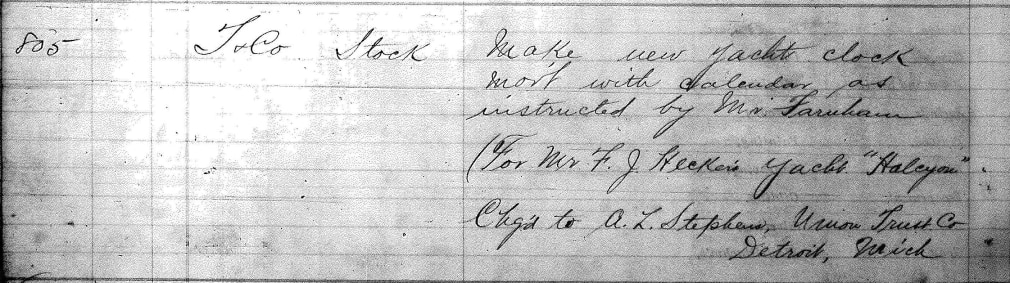 805 T & Co Stock Make new yacht clock
mov't with calendar as
instructed by Mr. Farnham
(For Mr F. J. Hecker's yacht "Halcyon"
Chg'd to A. L. Stephens, Union Trust Co
Detroit, Mich